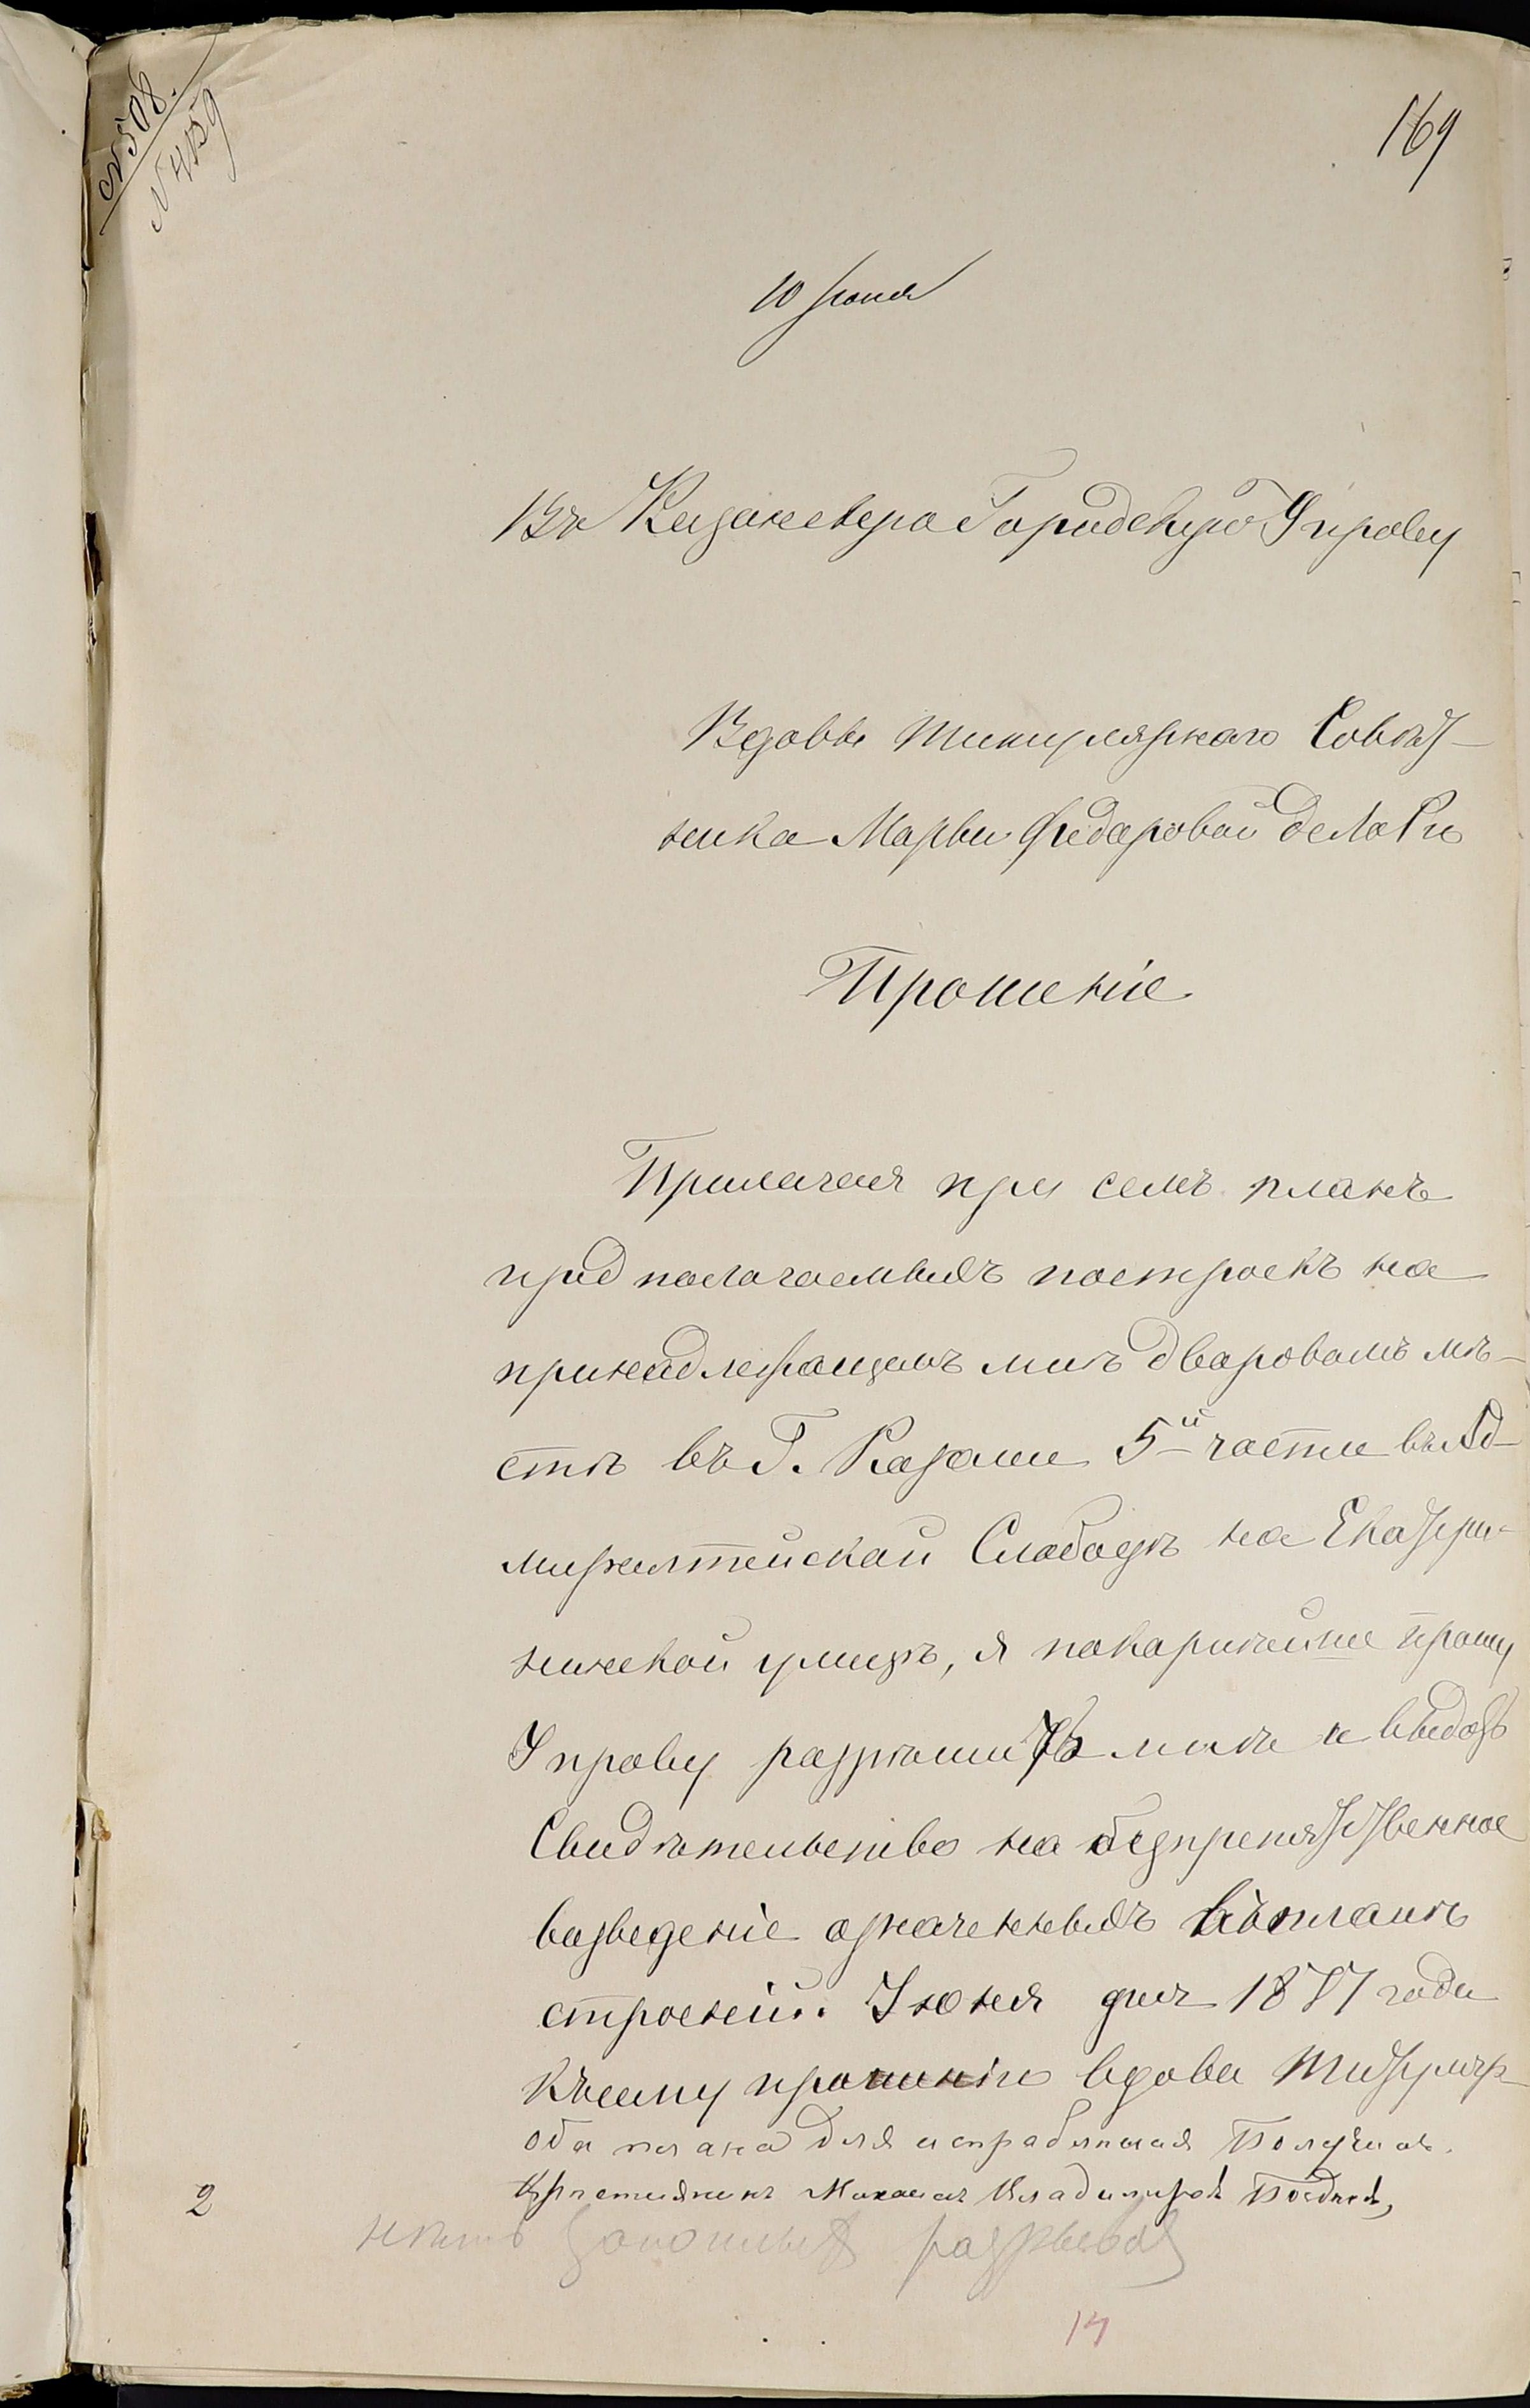 № 508.
№ 4159
169
10 Июня
Въ Казанскую Городскую Управу
Вдовы титулярнаго Совѣт-
ника Марьи Федаровой де ла Рю
Прошеніе
Прилагая при семъ планъ
предполагаемыхъ построекъ на
принадлежащемъ мнѣ дваровомъ мѣ-
стѣ въ Г. Казани 5й части въ Ад-
миралтейской Слабодѣ на Екатери-
нинской улицѣ, я покорнейше прошу
Управу разрѣшить мнѣ и выдать
Свидѣтельство на безпрепятственное
вазведеніе означенныхъ въ планѣ
строеній. Іюня дня 1877 года
Къ сему прошенію вдова Титуляр-
оба плана для исправления Получилъ.
Крестиянинъ Михаилъ Владимировъ
2
нѣтъ разрывовъ
14